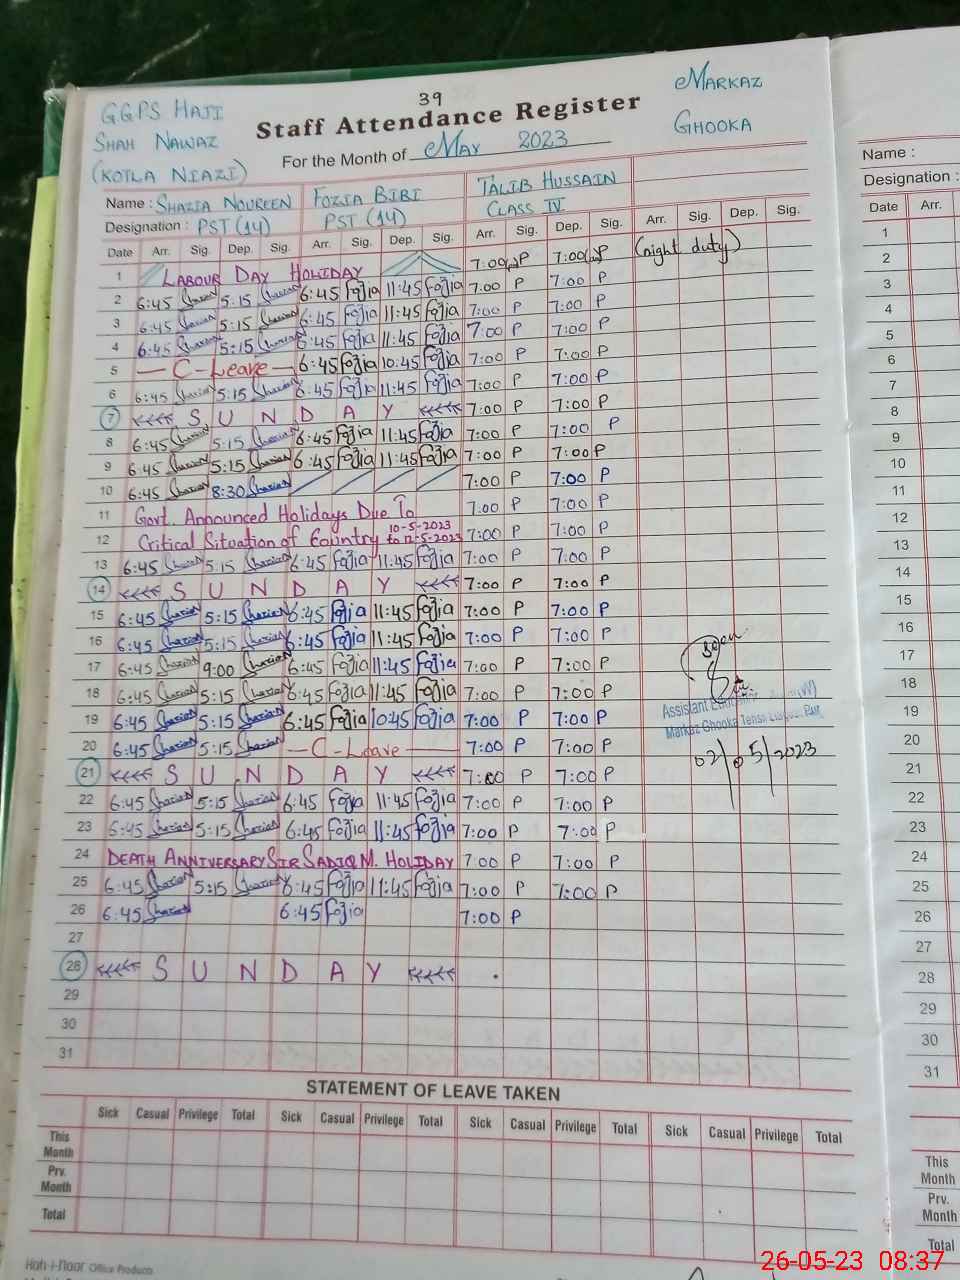 39
GGPS HAJI
SHAH NAWAZ
(KOTLA NIAZI)
Staff Attendance Register
For the Month of MAY 2023
MARKAZ
GHOOKA
Name : SHAZIA NOUREEN FOZIA BIBI TALIB HUSSAIN
Designation : PST (14) PST (14) CLASS IV
Date Arr. Sig. Dep. Sig. Arr. Sig. Dep. Sig. Arr. Sig. Dep. Sig. Arr. Sig. Dep. Sig.
1 LABOUR DAY HOLIDAY 7:00 P 7:00 P (night duty)
2 6:45 Shazia 5:15 Shazia 6:45 Fozia 11:45 Fozia 7:00 P 7:00 P
3 6:45 Shazia 5:15 Shazia 6:45 Fozia 11:45 Fozia 7:00 P 7:00 P
4 6:45 Shazia 5:15 Shazia 6:45 Fozia 11:45 Fozia 7:00 P 7:00 P
5 — C-Leave — 6:45 Fozia 10:45 Fozia 7:00 P 7:00 P
6 6:45 Shazia 5:15 Shazia 6:45 Fozia 11:45 Fozia 7:00 P 7:00 P
7 S U N D A Y 7:00 P 7:00 P
8 6:45 Shazia 5:15 Shazia 6:45 Fozia 11:45 Fozia 7:00 P 7:00 P
9 6:45 Shazia 5:15 Shazia 6:45 Fozia 11:45 Fozia 7:00 P 7:00 P
10 6:45 Shazia 8:30 Shazia 7:00 P 7:00 P
11 Govt. Announced Holidays Due To 7:00 P 7:00 P
12 Critical Situation of Country 10-5-2023 to 12-5-2023 7:00 P 7:00 P
13 6:45 Shazia 5:15 Shazia 6:45 Fozia 11:45 Fozia 7:00 P 7:00 P
14 S U N D A Y 7:00 P 7:00 P
15 6:45 Shazia 5:15 Shazia 6:45 Fozia 11:45 Fozia 7:00 P 7:00 P
16 6:45 Shazia 5:15 Shazia 6:45 Fozia 11:45 Fozia 7:00 P 7:00 P
17 6:45 Shazia 9:00 Shazia 6:45 Fozia 11:45 Fozia 7:00 P 7:00 P
18 6:45 Shazia 5:15 Shazia 6:45 Fozia 11:45 Fozia 7:00 P 7:00 P
19 6:45 Shazia 5:15 Shazia 6:45 Fozia 10:45 Fozia 7:00 P 7:00 P
20 6:45 Shazia 5:15 Shazia — C-Leave — 7:00 P 7:00 P
21 S U N D A Y 7:00 P 7:00 P
22 6:45 Shazia 5:15 Shazia 6:45 Fozia 11:45 Fozia 7:00 P 7:00 P
23 6:45 Shazia 5:15 Shazia 6:45 Fozia 11:45 Fozia 7:00 P 7:00 P
24 DEATH ANNIVERSARY SIR SADIQ M. HOLIDAY 7:00 P 7:00 P
25 6:45 Shazia 5:15 Shazia 6:45 Fozia 11:45 Fozia 7:00 P 7:00 P
26 6:45 Shazia 6:45 Fozia 7:00 P
27
28 S U N D A Y
29
30
31
Seen
Assistant
Markaz Ghooka
02/05/2023
STATEMENT OF LEAVE TAKEN
Sick Casual Privilege Total Sick Casual Privilege Total Sick Casual Privilege Total Sick Casual Privilege Total
This Month
Prv. Month
Total
Koh-i-Noor Office Products
Name :
Designation :
Date Arr.
1
2
3
4
5
6
7
8
9
10
11
12
13
14
15
16
17
18
19
20
21
22
23
24
25
26
27
28
29
30
31
This Month
Prv. Month
Total
26-05-23 08:37